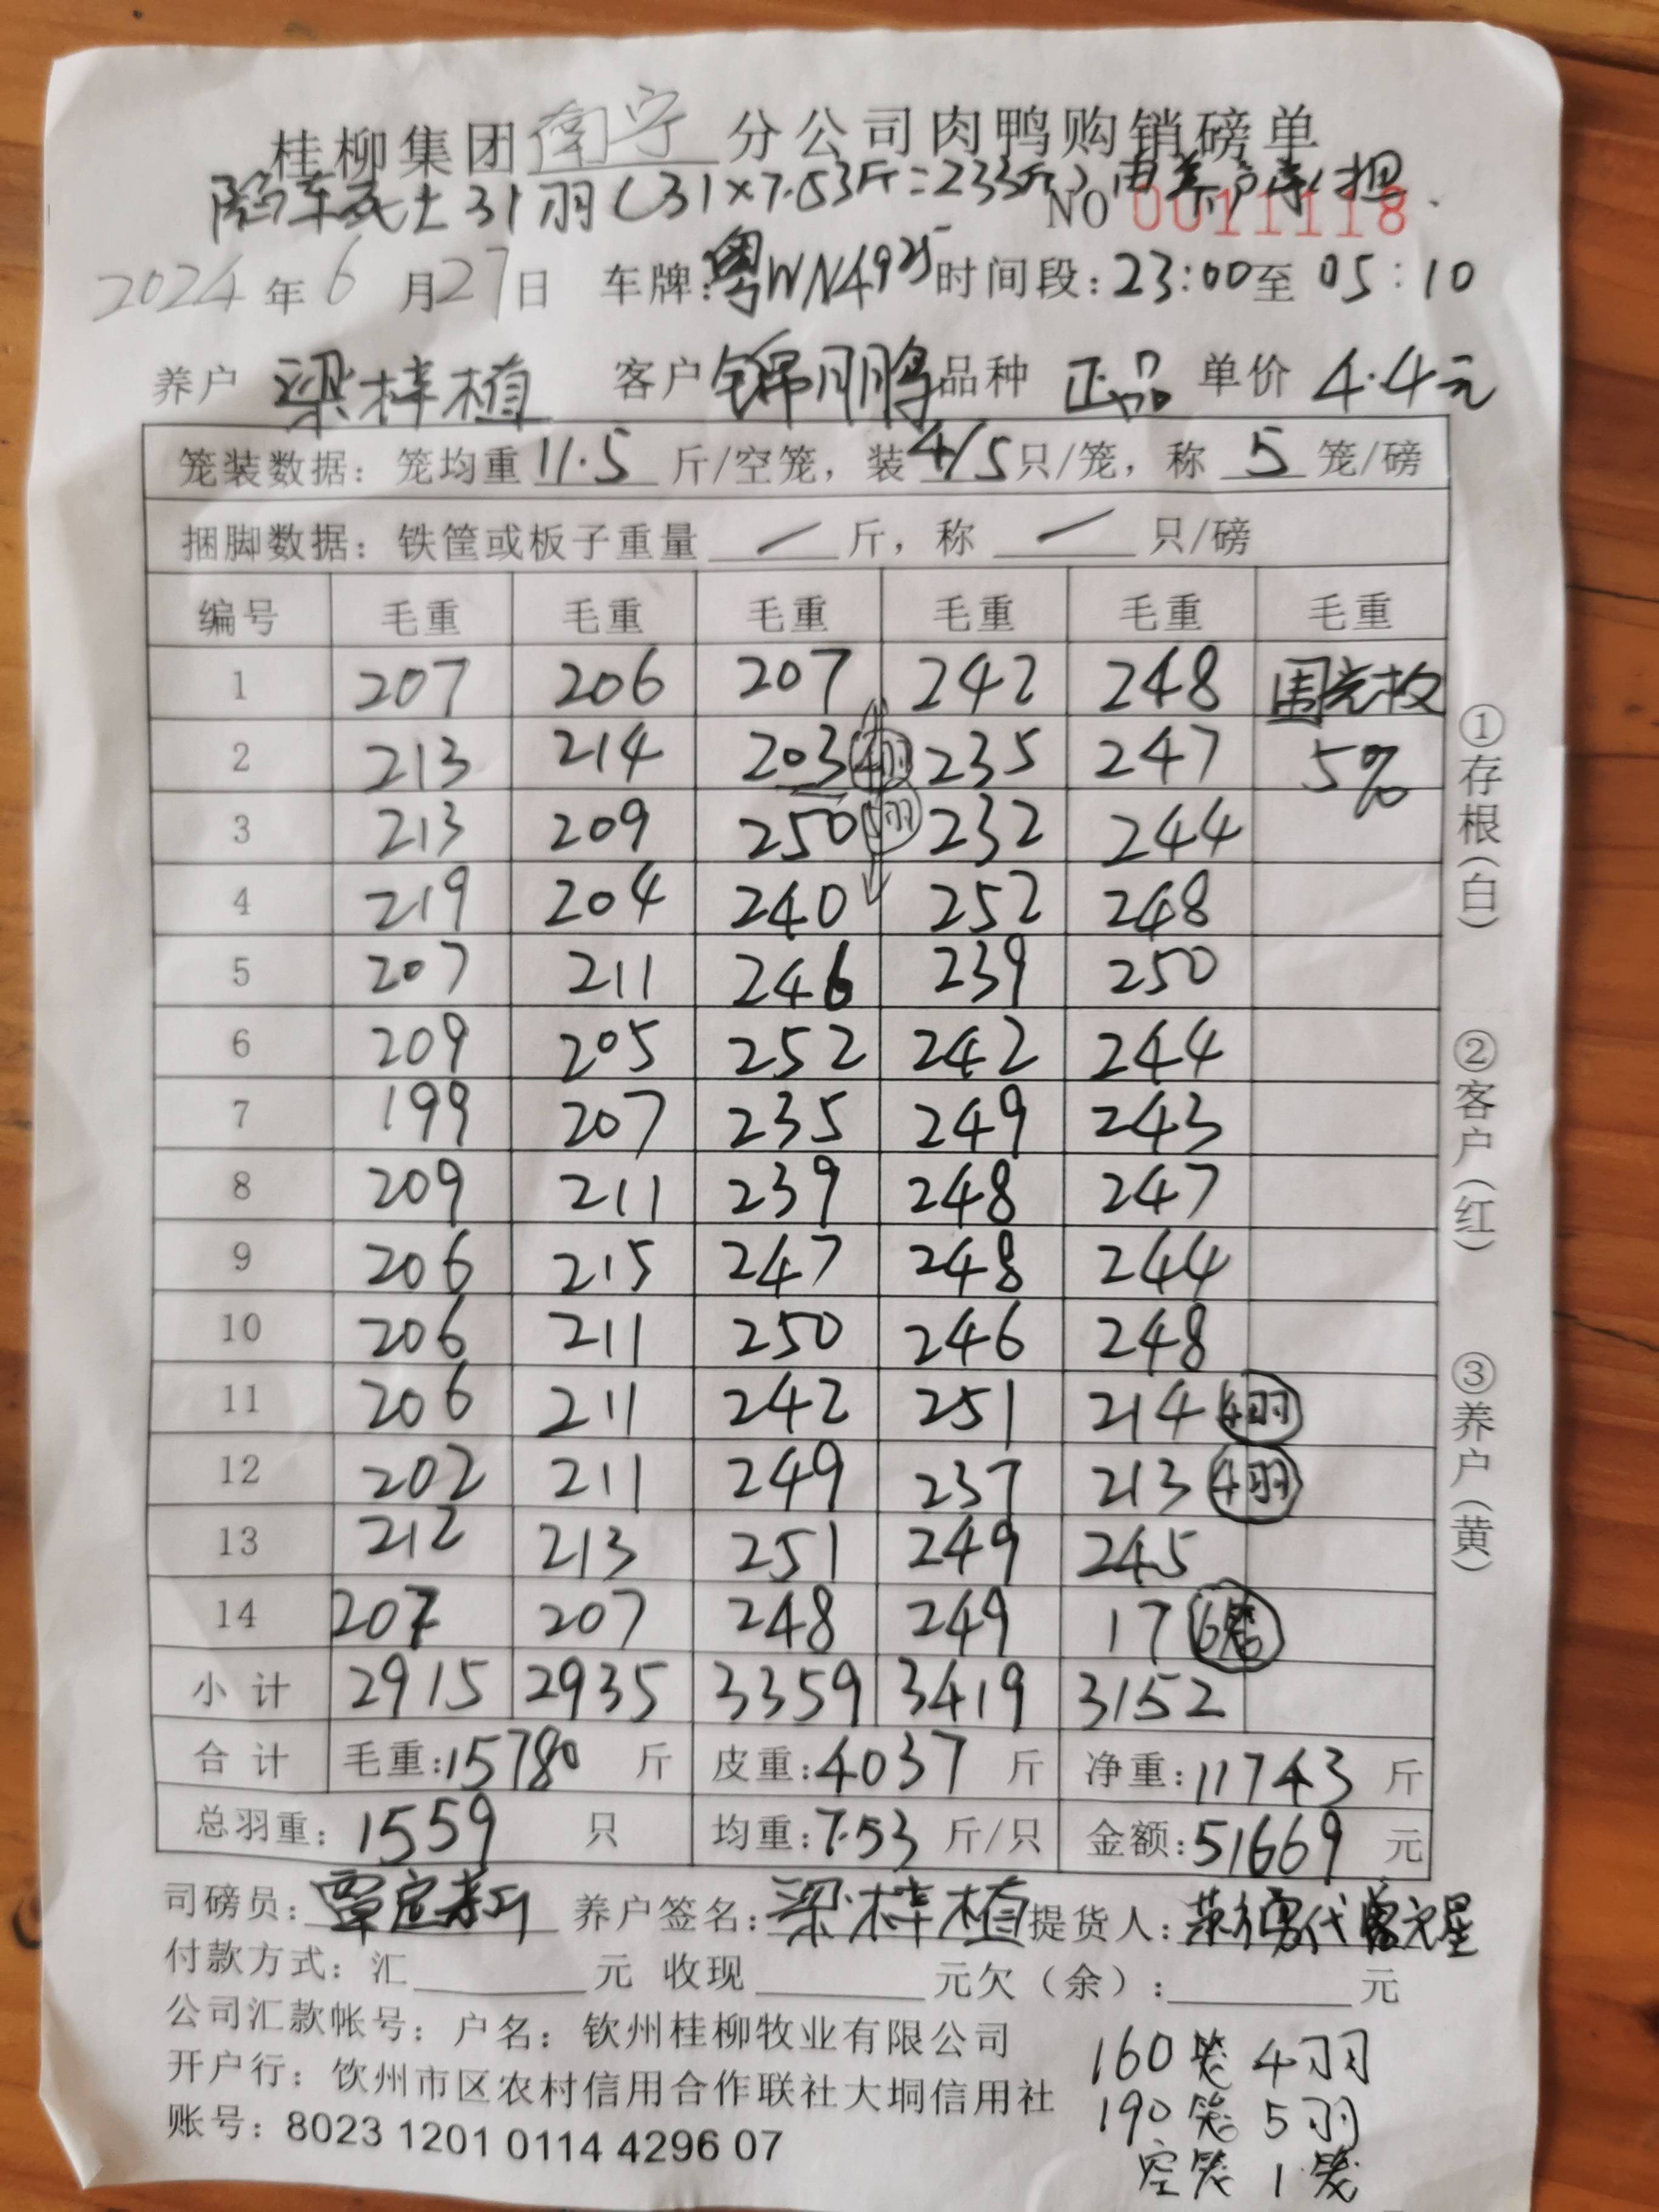 桂柳集团 南宁 分公司肉鸭购销磅单
除车死土31羽(31×7.53斤=233斤)由养户承担
NO 0011118
2024年6月27日 车牌:粤WN4925 时间段:23:00至05:10
养户 梁梓植 客户 锦鹏 品种 正品 单价 4.4元
笼装数据: 笼均重 11.5 斤/空笼, 装 4/5 只/笼, 称 5 笼/磅
捆脚数据: 铁筐或板子重量 / 斤, 称 / 只/磅
编号 毛重 毛重 毛重 毛重 毛重 毛重
1 207 206 207 242 248
2 213 214 203 4羽 235 247 5%
3 213 209 250 5羽 232 244
4 219 204 240 252 248
5 207 211 246 239 250
6 209 205 252 242 244
7 199 207 235 249 243
8 209 211 239 248 247
9 206 215 247 248 244
10 206 211 250 246 248
11 206 211 242 251 214 4羽
12 202 211 249 237 213 4羽
13 212 213 251 249 245
14 207 207 248 249 17
小计 2915 2935 3359 3419 3152
合计 毛重:15780 斤 皮重:4037 斤 净重:11743 斤
总羽重: 1559 只 均重:7.53 斤/只 金额:51669 元
司磅员: 养户签名:梁梓植 提货人:
付款方式: 汇 元 收现 元欠(余): 元
公司汇款帐号: 户名: 钦州桂柳牧业有限公司
开户行: 钦州市区农村信用合作联社大垌信用社
账号: 8023 1201 0114 4296 07
160笼 4羽
190笼 5羽
空笼 1笼
①存根(白)
②客户(红)
③养户(黄)